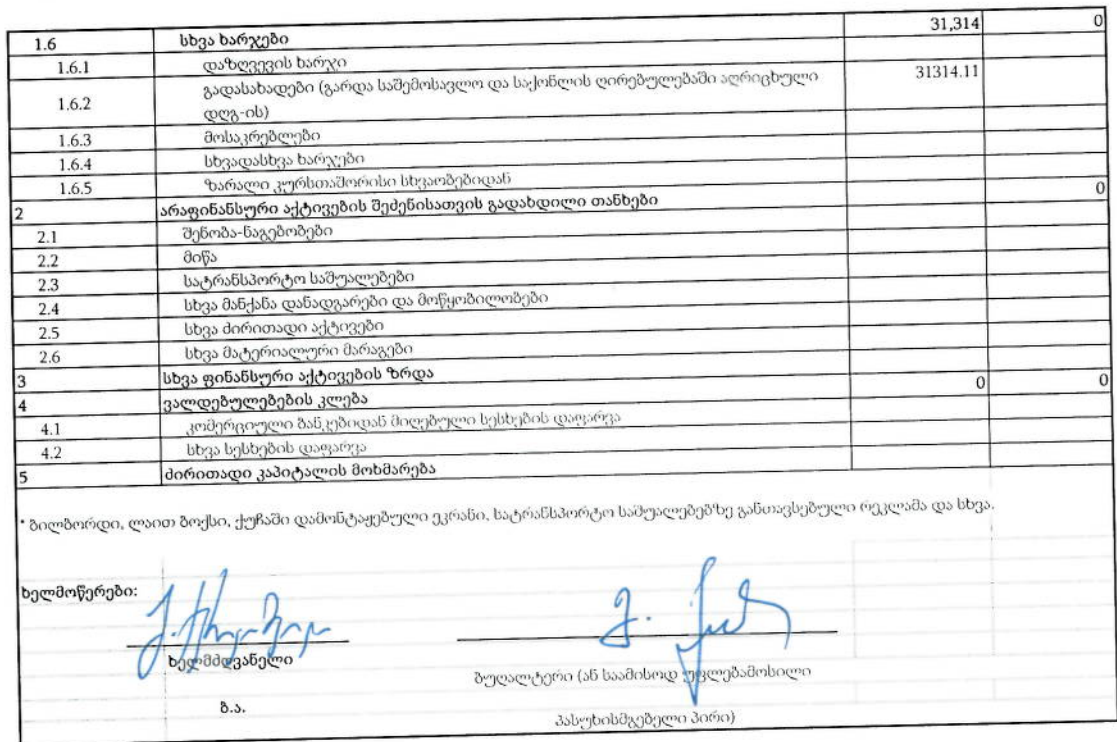 1.6 სხვა ხარჯები 31,314 0
1.6.1 დაზღვევის ხარჯი
1.6.2 გადასახადები (გარდა საშემოსავლო და საქონლის ღირებულებაში აღრიცხული 31314.11
დღგ-ის)
1.6.3 მოსაკრებლები
1.6.4 სხვადასხვა ხარჯები
1.6.5 ზარალი კურსთაშორისი სხვაობებიდან
2 არაფინანსური აქტივების შეძენისათვის გადახდილი თანხები 0
2.1 შენობა-ნაგებობები
2.2 მიწა
2.3 სატრანსპორტო საშუალებები
2.4 სხვა მანქანა დანადგარები და მოწყობილობები
2.5 სხვა ძირითადი აქტივები
2.6 სხვა მატერიალური მარაგები
3 სხვა ფინანსური აქტივების ზრდა
4 ვალდებულებების კლება 0 0
4.1 კომერციული ბანკებიდან მიღებული სესხების დაფარვა
4.2 სხვა სესხების დაფარვა
5 ძირითადი კაპიტალის მოხმარება
* ბილბორდი, ლაით ბოქსი, ქუჩაში დამონტაჟებული ეკრანი, სატრანსპორტო საშუალებებზე განთავსებული რეკლამა და სხვა.
ხელმოწერები:
ხელმძღვანელი
ბუღალტერი (ან საამისოდ უფლებამოსილი
ბ.ა.
პასუხისმგებელი პირი)